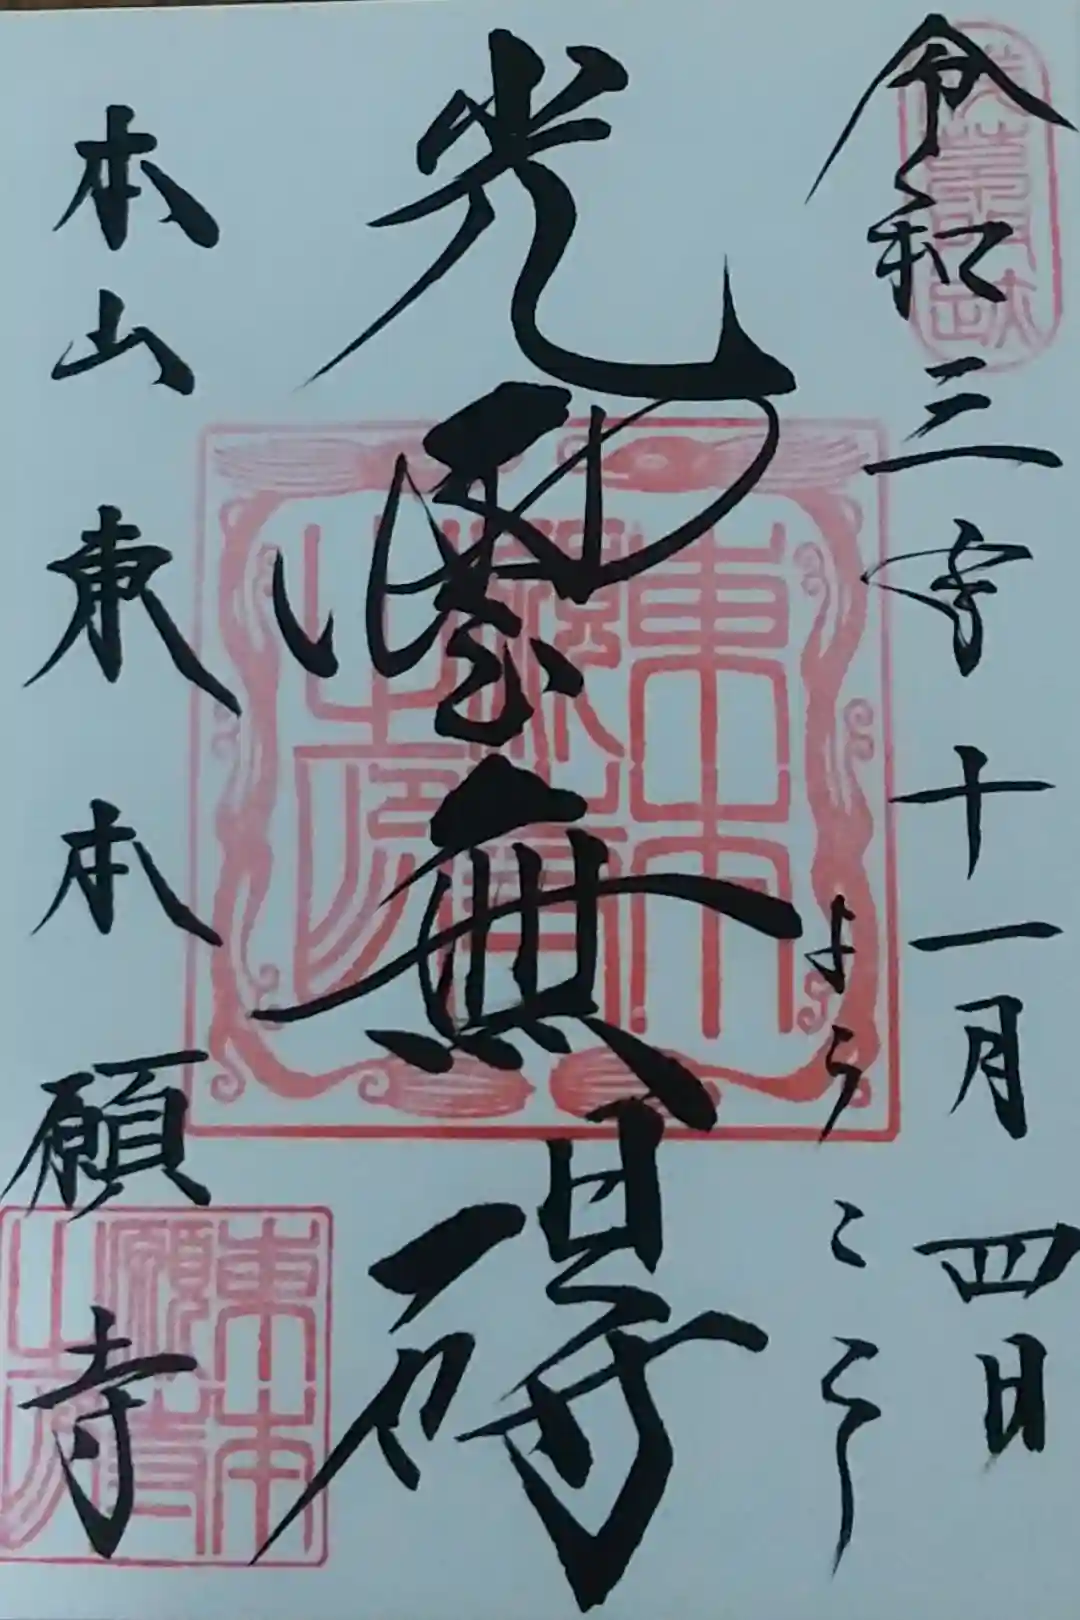 令和三年十一月四日
ようこそ
光雲無碍
本山東本願寺
東本
願寺
之印
東本
願寺
之印